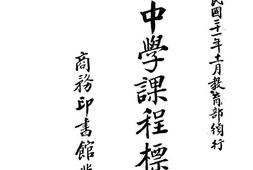 民國二十一年十一月教育部頒行
中學課程標
商務印書館